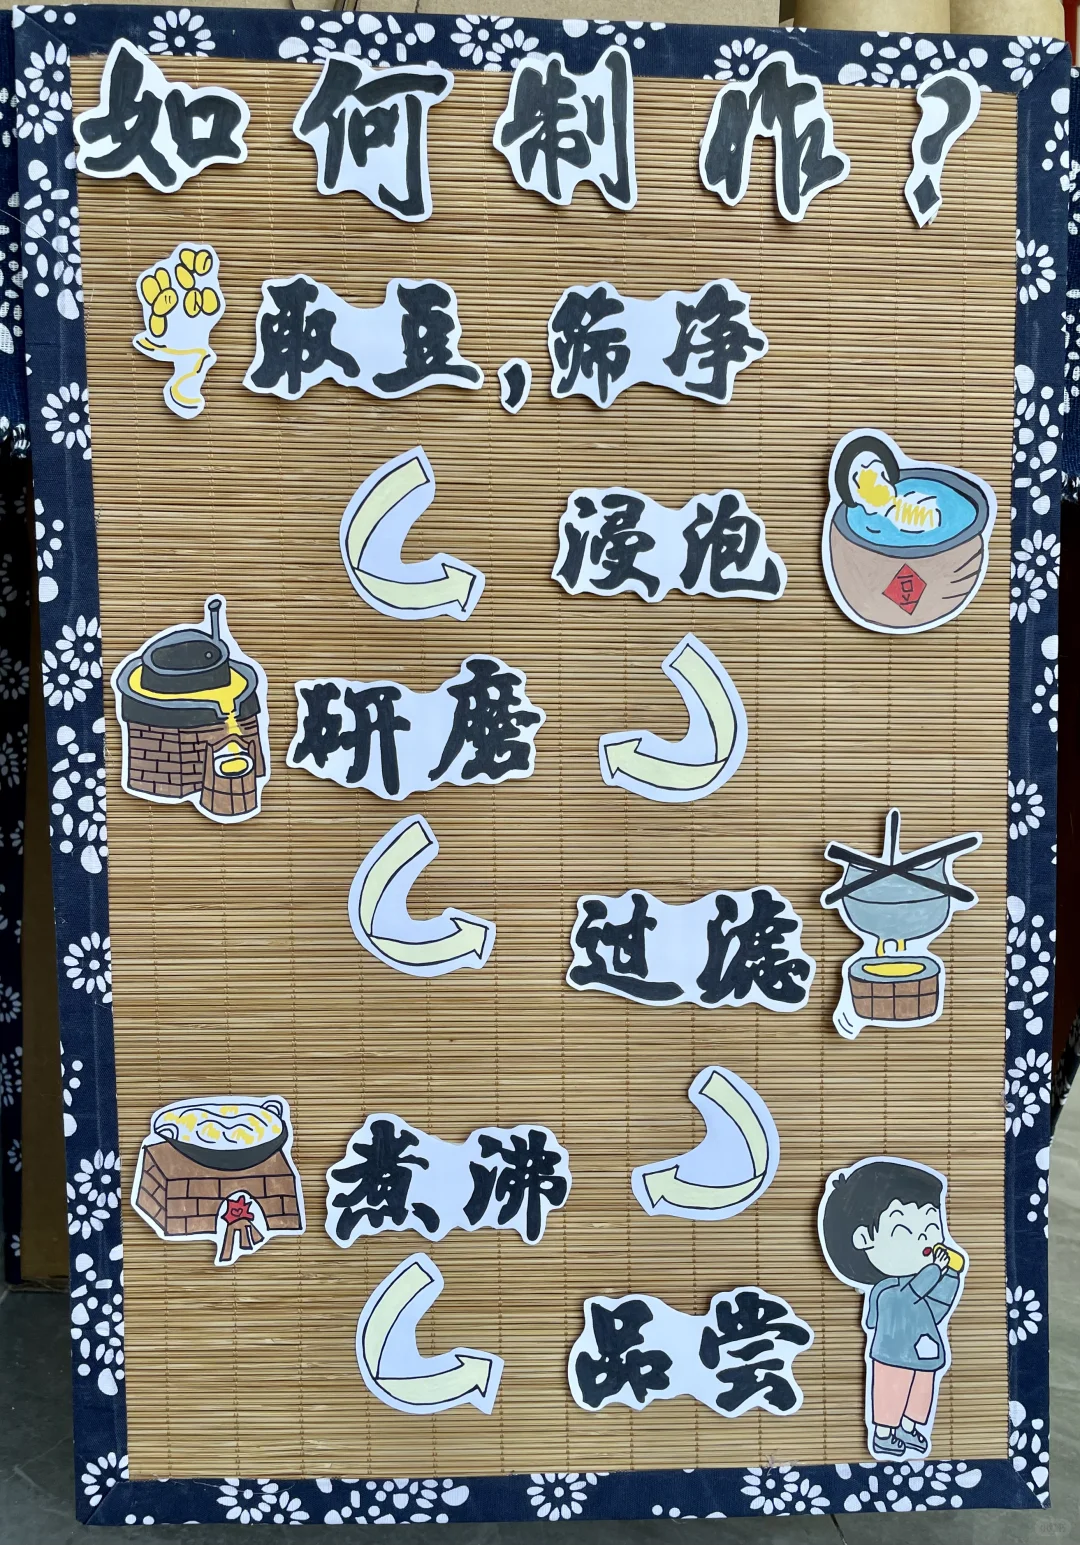 如何制作?
取豆,筛净
浸泡
豆
研磨
过滤
煮沸
品尝